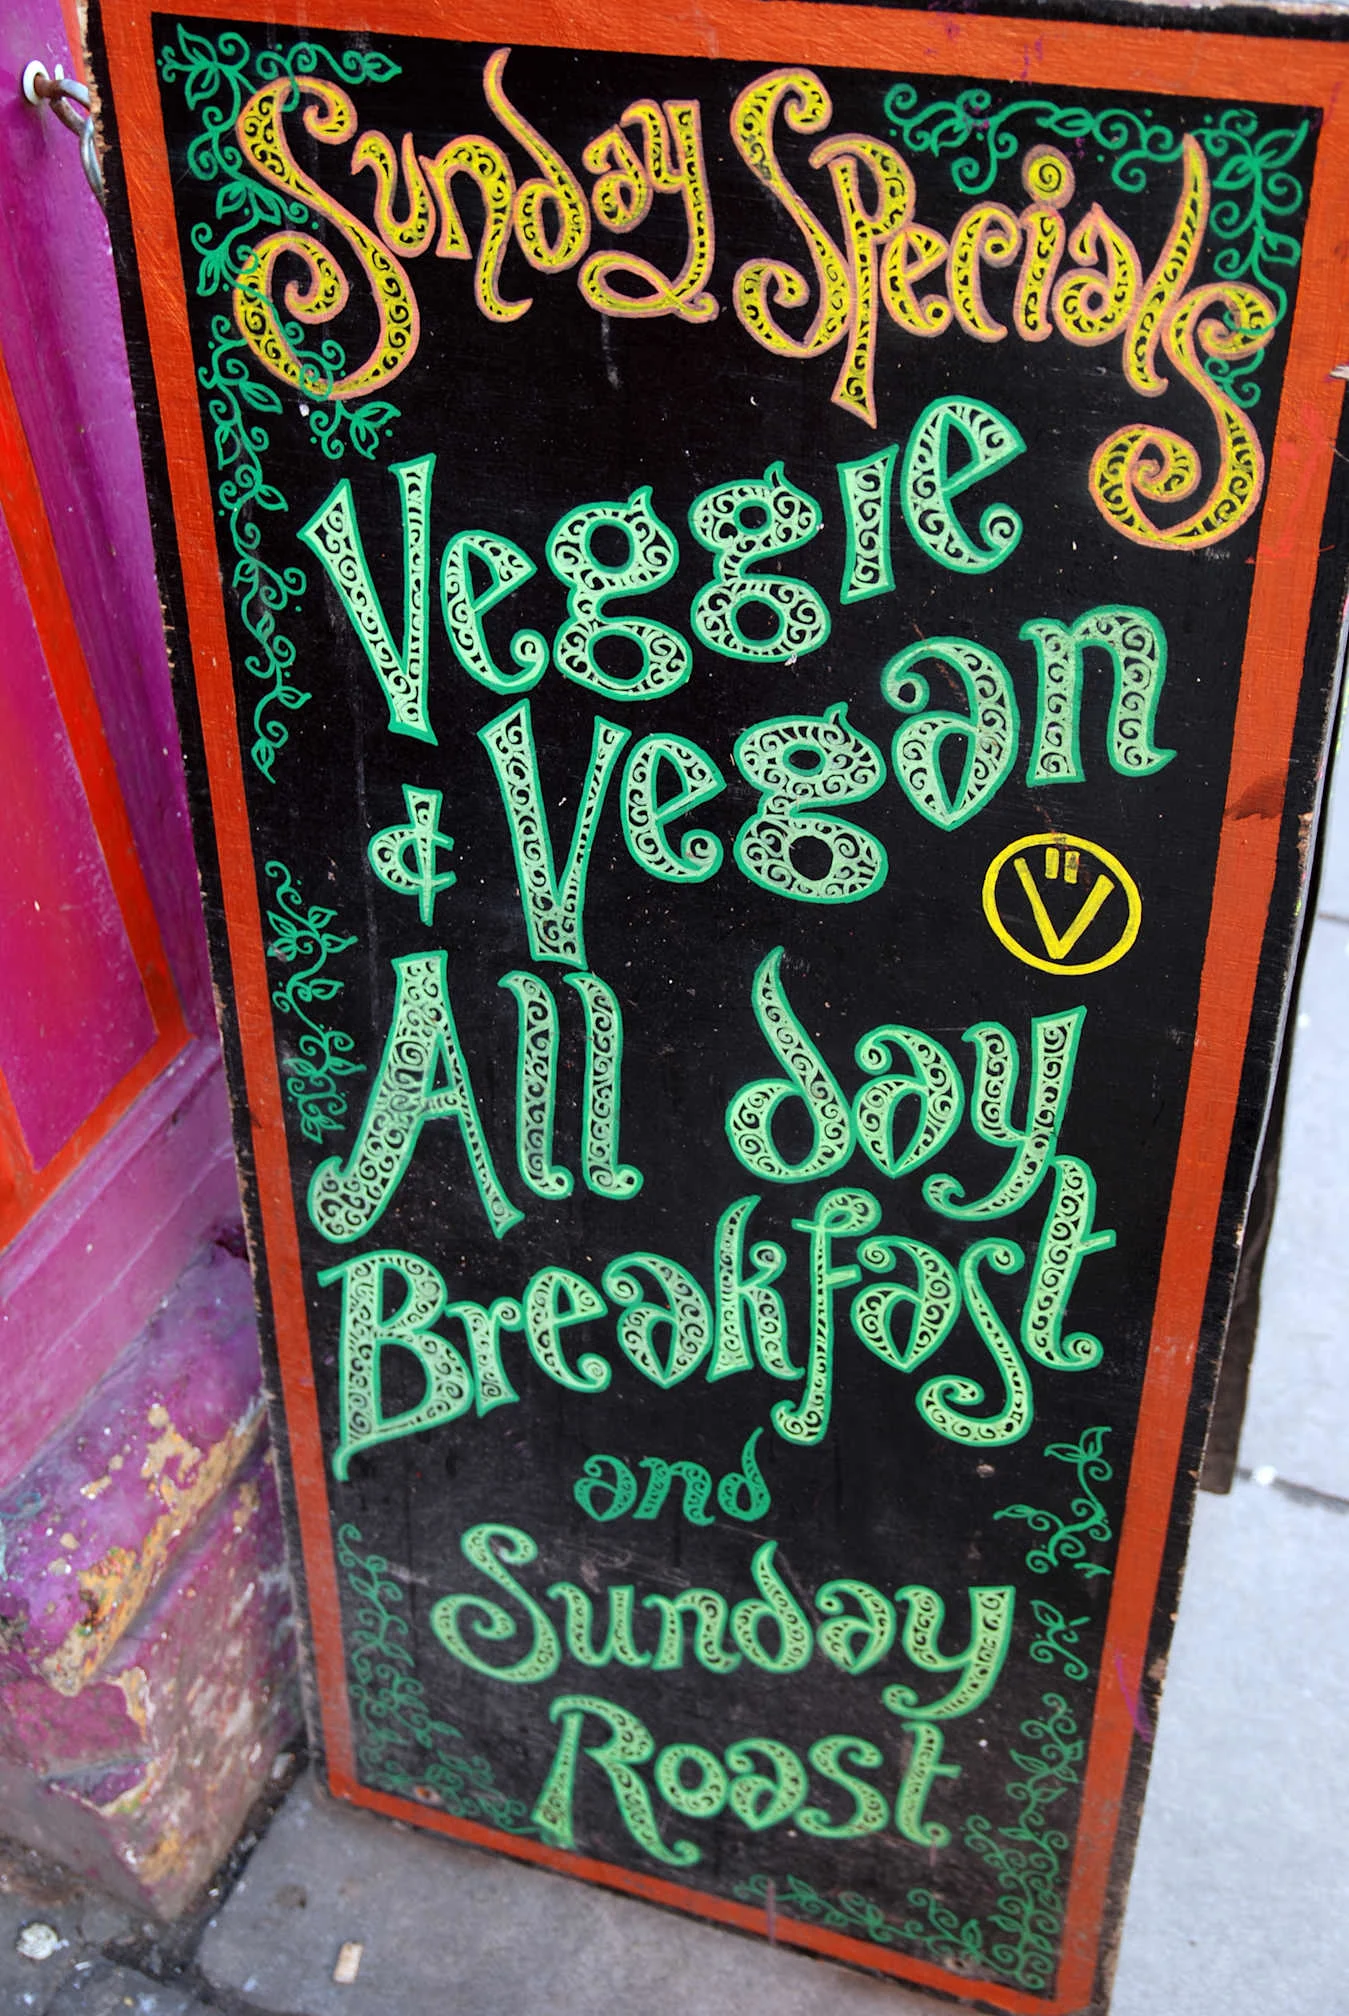 Sunday Specials
Veggie
& Vegan
V
All day
Breakfast
and
Sunday
Roast